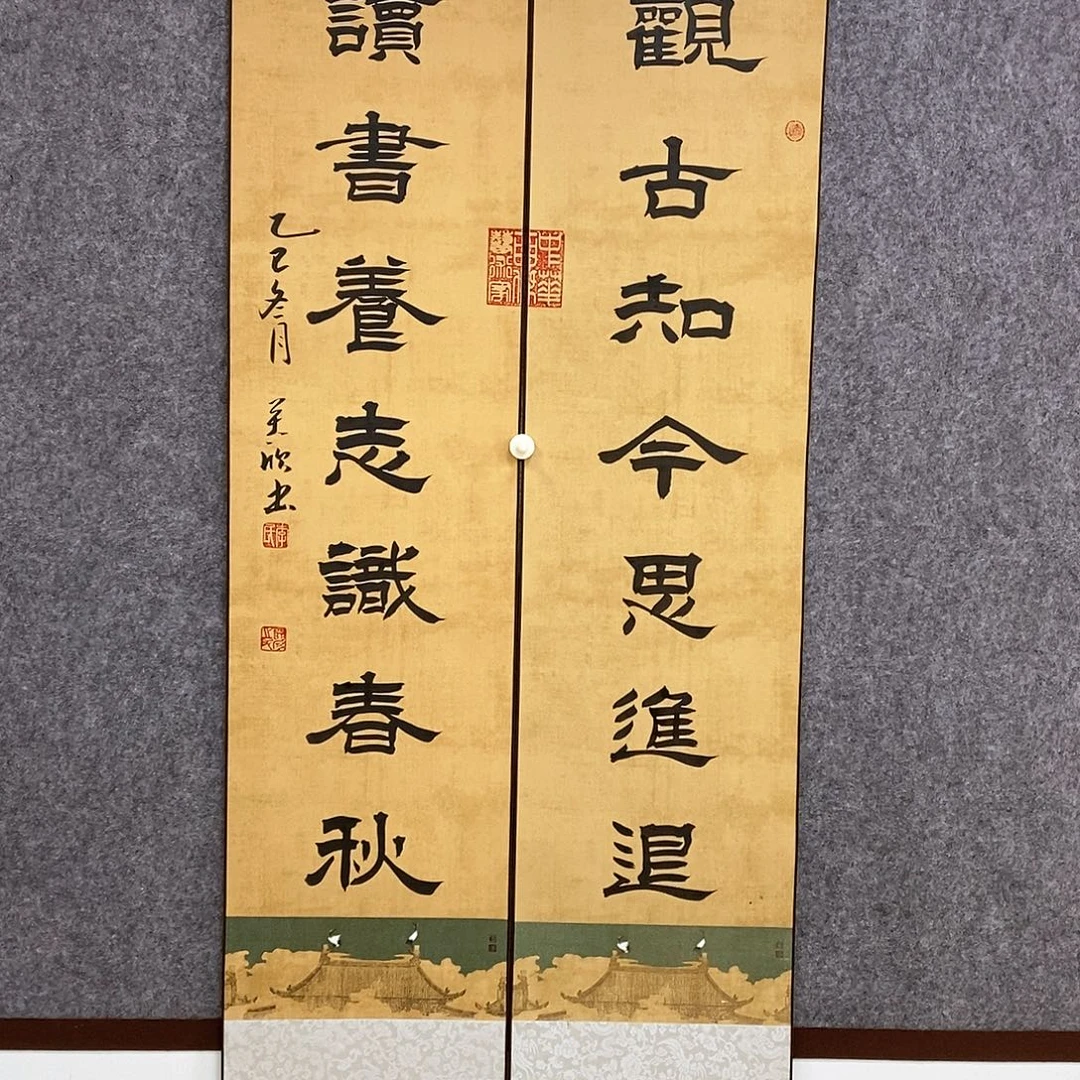 觀古知今思進退
讀書養志識春秋
乙巳冬月 美欣书